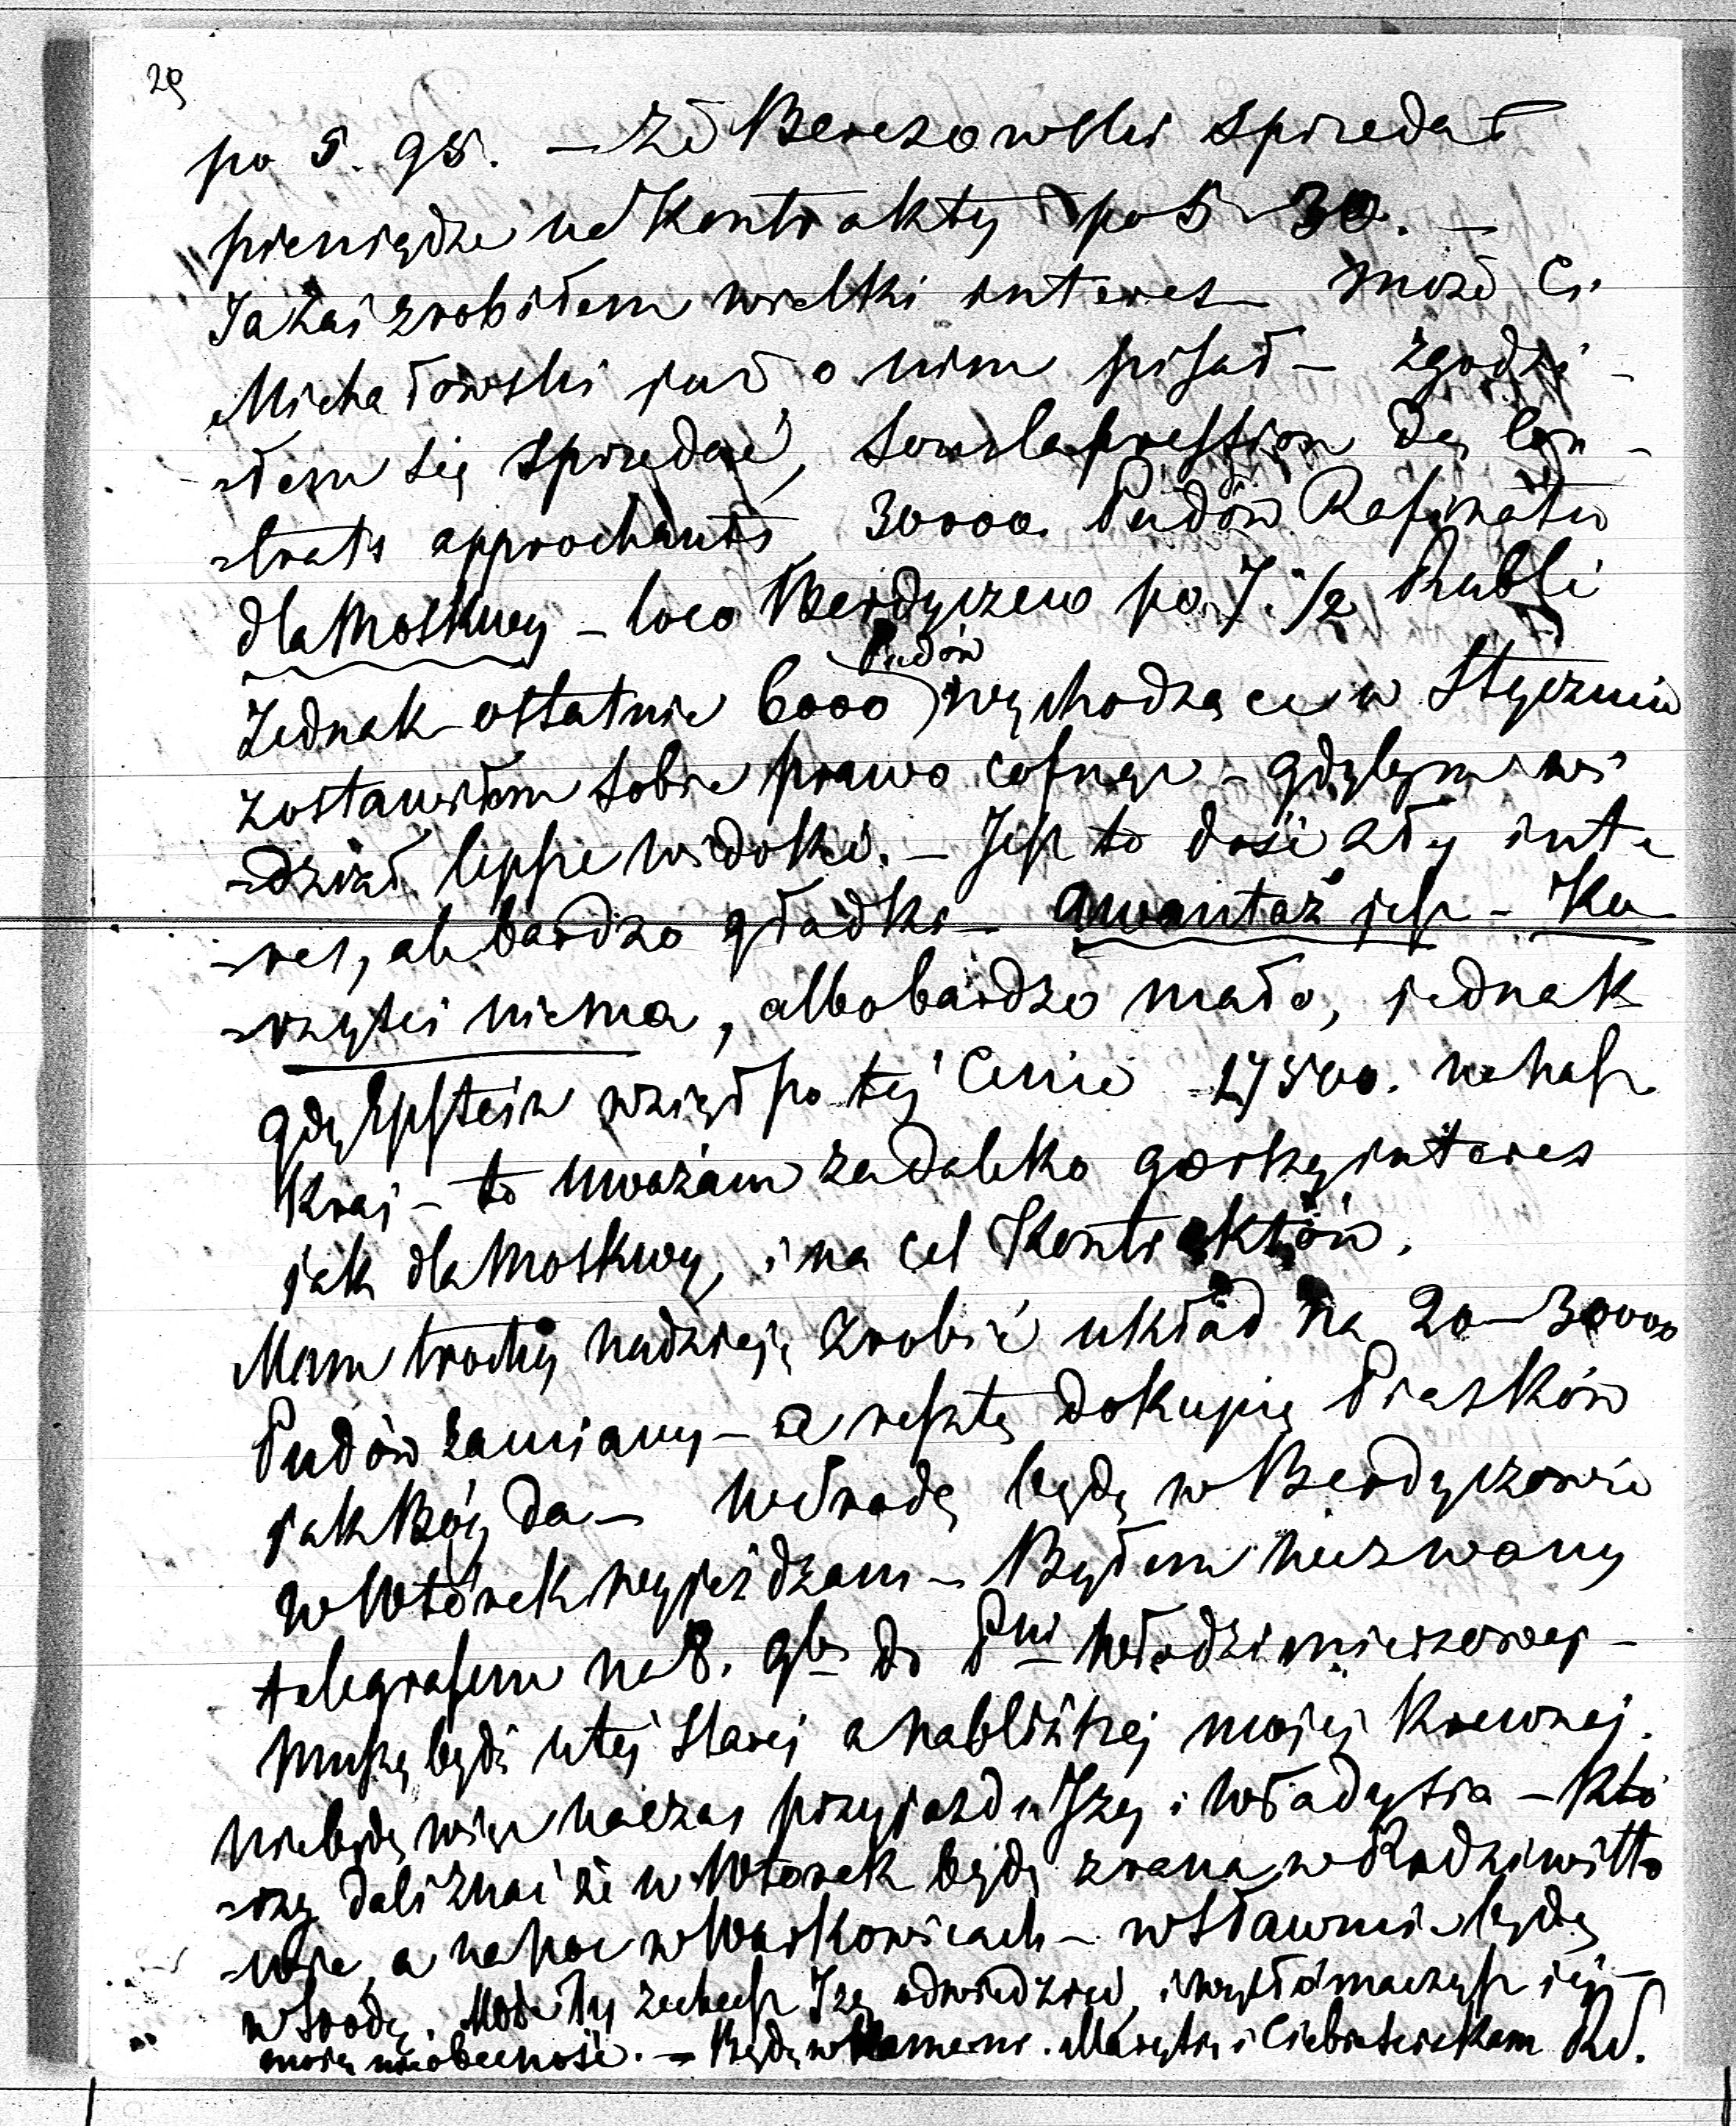 29
po 5. 95. – Że Berezowski sprzedał
pieniądze na Kontrakty po 5 30. –
Ja zaś zrobiłem wielki interes – może Ci
Michałowski już o nim pisał – zgodzi-
-łem się sprzedać, sous la pression des con-
-trats approchants, 30000. Pudów Rafinatu
dla Moskwy – loco Berdyczew po 7. 1/2 Rubli
Jednak ostatnie 6000 Pudów wychodzące w Styczniu
zostawiłem sobie prawo cofnąć – gdybym wi
-dział lepsze widoki. – Jest to dość zły inte
-res, ale bardzo gładki – awantaż jest – Ko
-rzyści niema, albo bardzo mało, jednak
gdy Epstein wziął po tej Cenie 17500. na nasz
Kraj – to uważam za daleko gorszy interes
jak dla Moskwy, i na cel Kontraktów.
Mam trochę nadzieję zrobić układ na 20–30000
Pudów zamiany – a resztę dokupię Piasków
jak Bóg da – we środę będę w Berdyczowie
w Wtorek wyjeżdżam – Byłem wezwany
telegrafem na 8. 9br do Pni Włodzimierzowej –
Muszę być u tej starej a nabliższej mojej Krewnej.
Niebędę więc na czas przyjazdu Izy i Władysia – Któ
-rzy dali znać że w Wtorek będą z rana w Radziwiłło
-wie, a na noc w Warkowicach – w Sławucie będą
w środę. Może Ty zechcesz Izę odwiedzieć, i wytłómaczysz jej
moją nieobecność. – Będę w Kamieni. Marytię i Ciebie ściskam Rd.